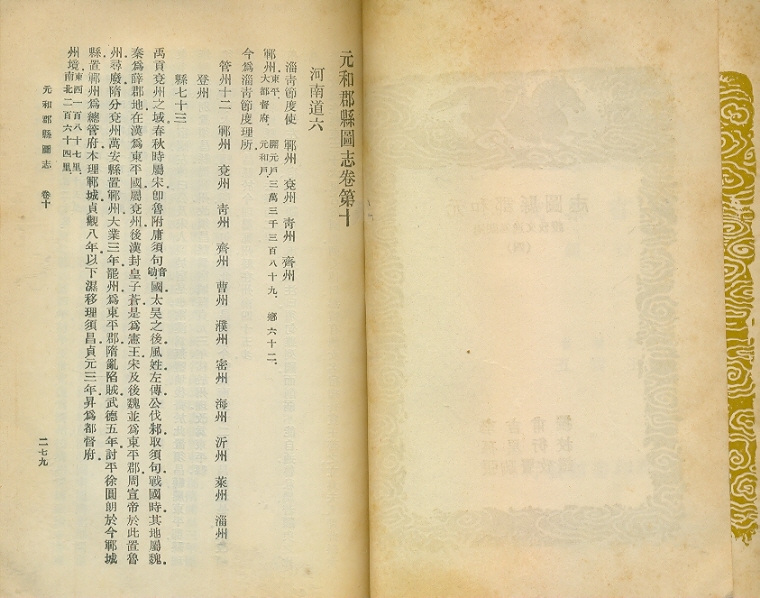 元和郡縣圖志卷第十
河南道六
淄青節度使 鄆州 兗州 青州 齊州
鄆州東平大都督府 開元戶三萬三千三百八十九 鄉六十二 元和戶
今為淄青節度理所
管州十二 鄆州 兗州 青州 齊州 曹州 濮州 密州 海州 沂州 萊州 淄州
登州
縣七十三
禹貢兗州之域春秋時屬宋卽魯附庸須句音劬國太昊之後風姓左傳公伐邾取須句戰國時其地屬魏
秦為薛郡地在漢為東平國屬兗州後漢封皇子蒼是為憲王宋及後魏並為東平郡周宣帝於此置魯
州尋廢隋分兗州萬安縣置鄆州大業三年罷州為東平郡隋亂陷賊武德五年討平徐圓朗於今鄆城
縣置鄆州為總管府本理鄆城貞觀八年以下濕移理須昌貞元三年昇為都督府
州境東西一百八十七里南北二百六十四里
元和郡縣圖志 卷十
二七九